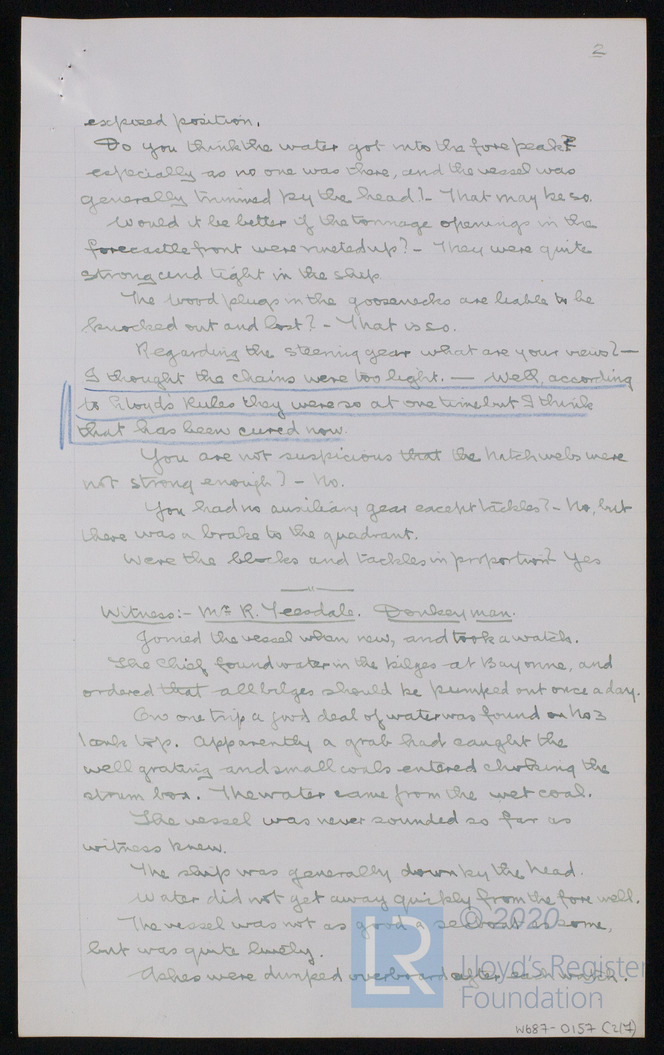 2
exposed position.
Do you think the water got into the forepeak?
especially as no one was there, and the vessel was
generally trimmed by the head? - That may be so.
Would it be better if the tonnage openings in the
forecastle front were riveted up? - They were quite
strong and tight in the ship
The wood plugs in the goosenecks are liable to be
knocked out and lost? - That is so.
Regarding the steering gear what are your views? -
I thought the chains were too light. - Well, according
to Lloyd's Rules they were so at one time but I think
that has been cured now.
You are not suspicious that the hatch webs were
not strong enough? - No.
You had no auxiliary gear except tackles? - No, but
there was a brake to the quadrant.
Were the blocks and tackles in proportion? Yes
Witness:- Mr R. Teesdale. Donkeyman.
Joined the vessel when new, and took a watch.
The Chief found water in the bilges at Bayonne, and
ordered that all bilges should be pumped out once a day.
On one trip a good deal of water was found on No 3
tank top. Apparently a grab had caught the
well grating and small coals entered choking the
strum box. The water came from the wet coal.
The vessel was never sounded so far as
witness knew.
The ship was generally down by the head.
Water did not get away quickly from the fore well.
The vessel was not as good a seaboat as some,
but was quite lively.
Ashes were dumped overboard after each watch.
LR
© 2020
Lloyd's Register
Foundation
W687-0157 (2/7)